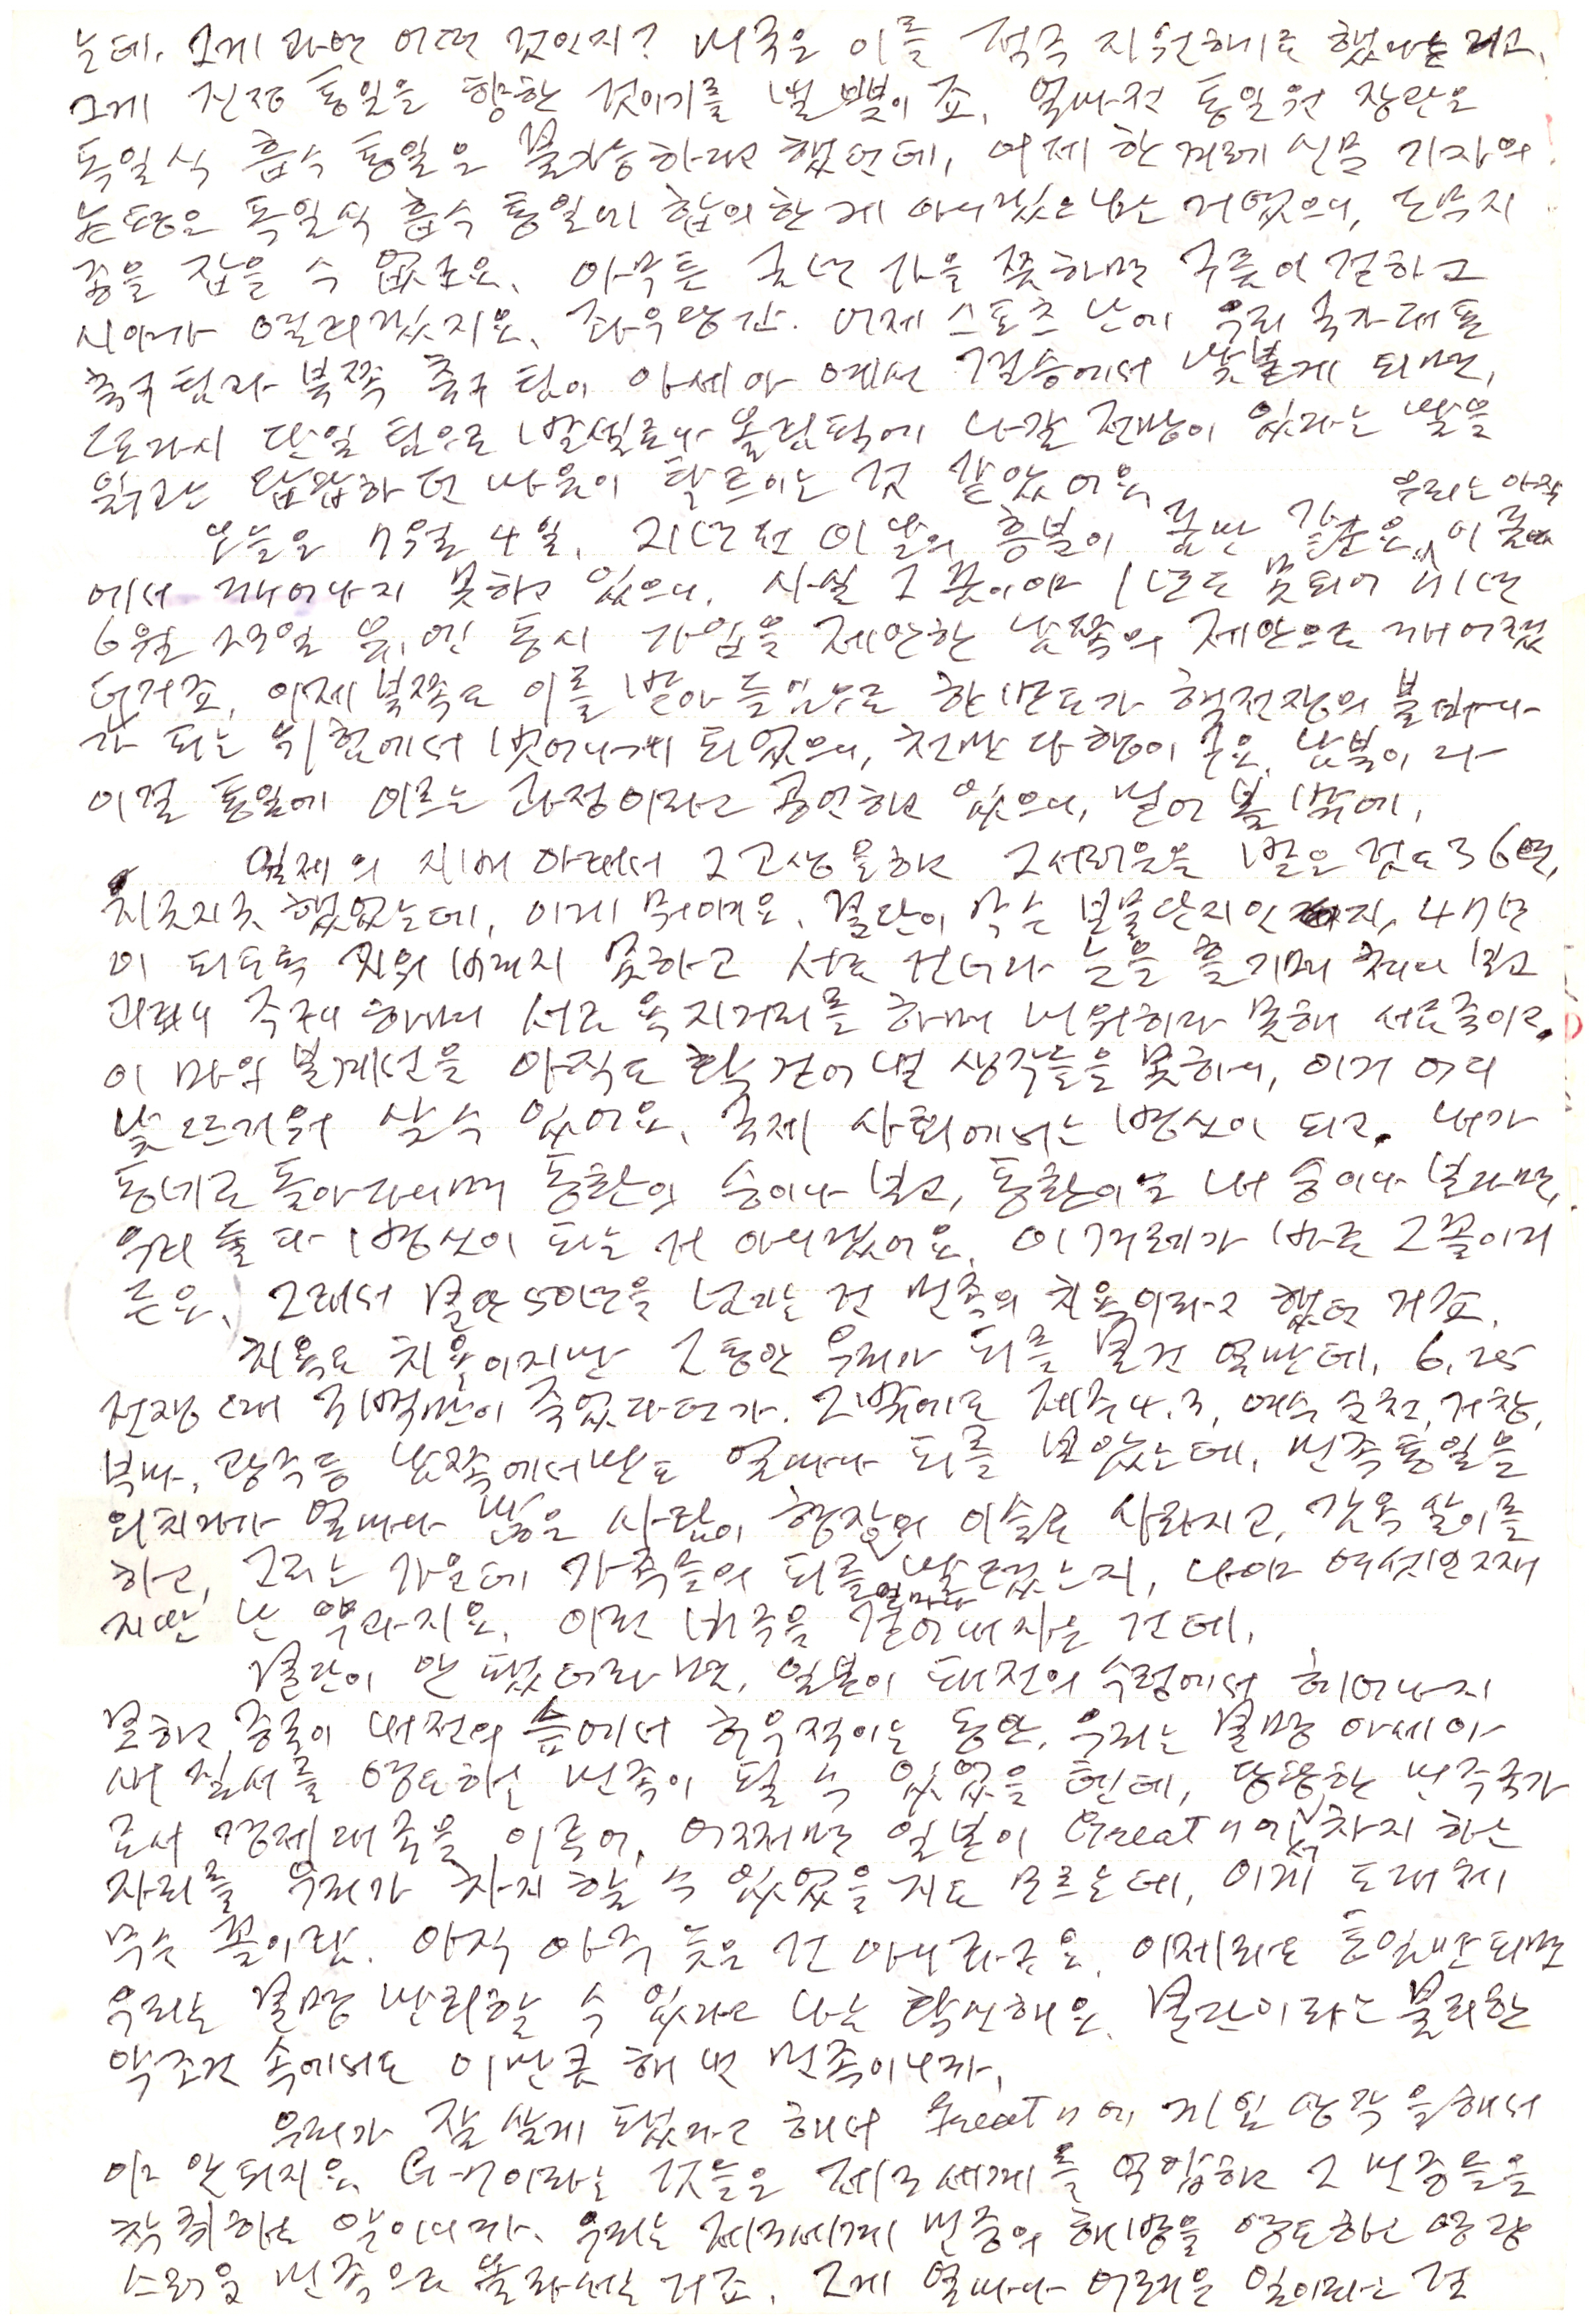 는데, 그게 과연 어떤 것인지? 미국은 이를 적극 지원하기로 했다는 거고,
그게 진정 통일을 향한 것이기를 빌 뿐이죠. 얼마전 통일원 장관은
독일식 흡수 통일은 불가능하다고 했던데, 어제 한겨레 신문 기자의
논평은 독일식 흡수 통일에 합의한 게 아니겠느냐는 거였으니, 도무지
종을 잡을 수 없군요. 아무튼 금년 가을쯤 하면 구름이 걷히고
시야가 열리겠지요. 좌우당간. 어제 스포츠 난에 우리 국가 대표
축구팀과 북쪽 축구팀이 아세아 예선 결승에서 맞붙게 되면,
또다시 단일팀으로 바르셀로나 올림픽에 나갈 전망이 있다는 말을
읽구는 답답하던 마음이 탁 트이는 것 같았어요.
오늘은 7월 4일. 21년전 이 날의 흥분이 꿈만 같군요. 우리는 아직 이 꿈
에서 깨어나지 못하고 있으니. 사실 그 꿈이야 1년도 못되어
6월 23일 유.엔 동시 가입을 제안한 남쪽의 제안으로 깨어졌
던거죠. 이제 북쪽도 이를 받아들임으로 한반도가 핵전쟁의 불바다
가 되는 위험에서 벗어나게 되었으니, 천만 다행이군요. 남북이 다
이걸 통일에 이르는 과정이라고 공언하고 있으니, 믿어 볼 밖에.
일제의 지배 아래서 그 고생을 하고 그 서러움을 받은 것도 36년,
지긋지긋 했었는데, 이게 뭐예요. 분단이 무슨 보물단지인지, 47년
이 되도록 치워 버리지 못하고 서로 건너다 눈을 흘기며 쳐다 보고
으르대며 서로 욕지거리를 하며 미워하다 못해 서로 죽이고.
이 마의 분계선을 아직도 탁 걷어 낼 생각들을 못하니, 이거 어디
낯 뜨거워 살 수 있어요. 국제 사회에서는 병신이 되고. 내가
동네로 돌아다니며 동환의 숭이나 보고, 동환이는 내 숭이나 본다면,
우리 둘 다 병신이 되는 거 아니겠어요. 이 겨레가 바로 그 꼴이거
든요. 그래서 분단 50년을 넘기는 건 민족의 치욕이라고 했던 거죠.
치욕도 치욕이지만 그동안 우리가 피를 본 건 얼만데. 6.25
전쟁 때 몇백만이 죽었다던가. 그밖에도 제주 4.3, 여수 순천, 거창,
부마, 광주 등 남쪽에서만도 얼마나 피를 보았는데, 민족 통일을
외치다가 얼마나 많은 사람이 형장의 이슬로 사라지고, 감옥살이를
하고, 그러는 가운데 가족들의 피를 얼마나 말렸는지, 나야 여섯번째
지만 난 약과지요. 이런 비극을 걷어내자는 건데.
분단이 안 됐더라면, 일본이 패전의 수렁에서 헤어나지
못하고 중국이 내전의 늪에서 허우적이는 동안, 우리는 분명 아세아
새 질서를 영도하는 민족이 될 수 있었을 텐데, 당당한 민족 국가
로서 경제 대국을 이루어, 어쩌면 일본이 Great 7에서 차지 하는
자리를 우리가 차지 할 수 있었을 지도 모르는데, 이게 도대체
무슨 꼴이람. 아직 아주 늦은 건 아니라구요. 이제라도 통일만 되면
우리는 분명 만회할 수 있다고 나는 확신해요. 분단이라는 불리한
악조건 속에서도 이만큼 해 낸 민족이니까.
우리가 잘 살게 됐다고 해서 Great 7에 끼일 생각을 해서
야 안되지요. G-7이라는 것들은 제3세계를 억압하고 그 민중들을
착취하는 악이니까. 우리는 제3세계 민중의 해방을 영도하는 영광
스러운 민족으로 올라서는 거죠. 그게 얼마나 어려운 일이라는 걸